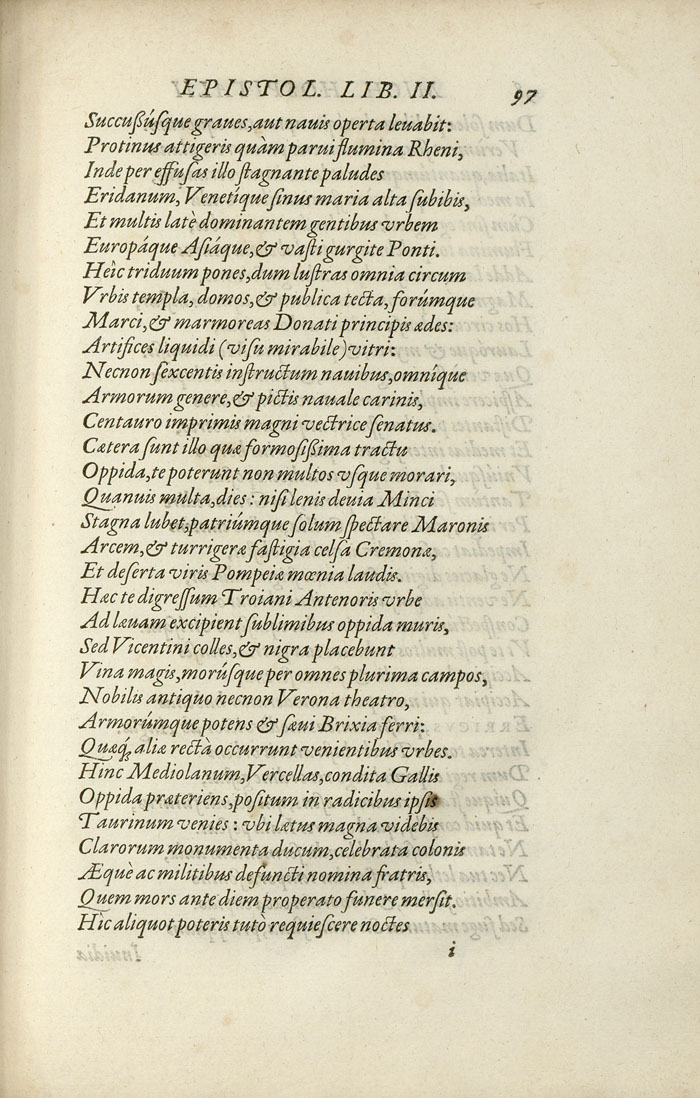 EPISTOL. LIB. II. 97
Succußúsque graues, aut nauis operta leuabit:
Protinus attigeris quàm parui flumina Rheni,
Inde per effusas illo stagnante paludes
Eridanum, Venetíque sinus maria alta subibis,
Et multis latè dominantem gentibus vrbem
Europáque Asiáque, & vasti gurgite Ponti.
Heîc triduum pones, dum lustras omnia circum
Vrbis templa, domos, & publica tecta, forúmque
Marci, & marmoreas Donati principis ædes:
Artifices liquidi (visu mirabile) vitri:
Necnon sexcentis instructum nauibus, omníque
Armorum genere, & pictis nauale carinis,
Centauro imprimis magni vectrice senatus.
Cætera sunt illo quæ formosißima tractu
Oppida, te poterunt non multos vsque morari,
Quanuis multa, dies: nisi lenis deuia Minci
Stagna lubet, patriúmque solum spectare Maronis
Arcem, & turrigeræ fastigia celsa Cremonæ,
Et deserta viris Pompeiæ mœnia laudis.
Hæc te digressum Troiani Antenoris vrbe
Ad læuam excipient sublimibus oppida muris,
Sed Vicentini colles, & nigra placebunt
Vina magis, morúsque per omnes plurima campos,
Nobilis antiquo necnon Verona theatro,
Armorúmque potens & sæui Brixia ferri:
Quæq́; aliæ rectà occurrunt venientibus vrbes.
Hinc Mediolanum, Vercellas, condita Gallis
Oppida præteriens, positum in radicibus ipsis
Taurinum venies: vbi lætus magna videbis
Clarorum monumenta ducum, celebrata colonis
Æquè ac militibus defuncti nomina fratris,
Quem mors ante diem properato funere mersit.
Hîc aliquot poteris tutò requiescere noctes
i